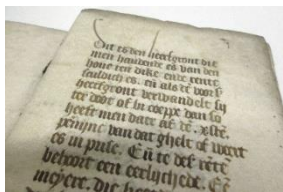 Dit es den heerfgront die
men haudende es van den
houe ten dike ende rente
sculdich es. en als de voors
heerfgront verwandelt sy
ter doot of in coepe dan so
heeft men daer af te
penijnc van dat ghelt of weert
es in pale. En te des
behoort een eerlychede. En
meyere. die